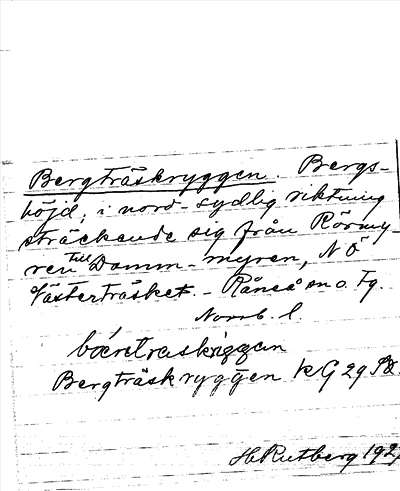 Bergträskryggen. Bergs-
höjd, i nord-sydlig riktning
sträckande sig från Rörmy-
ren till Damm-myren, NÖ
Västerträsket. - Råneå sn o. tg.
Norrb. l.
Bergträskryggen kG 29
H Rutberg 192